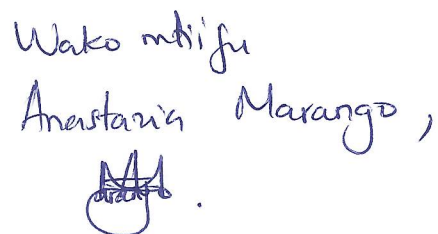 Wako mtiifu
Anastazia Marango,